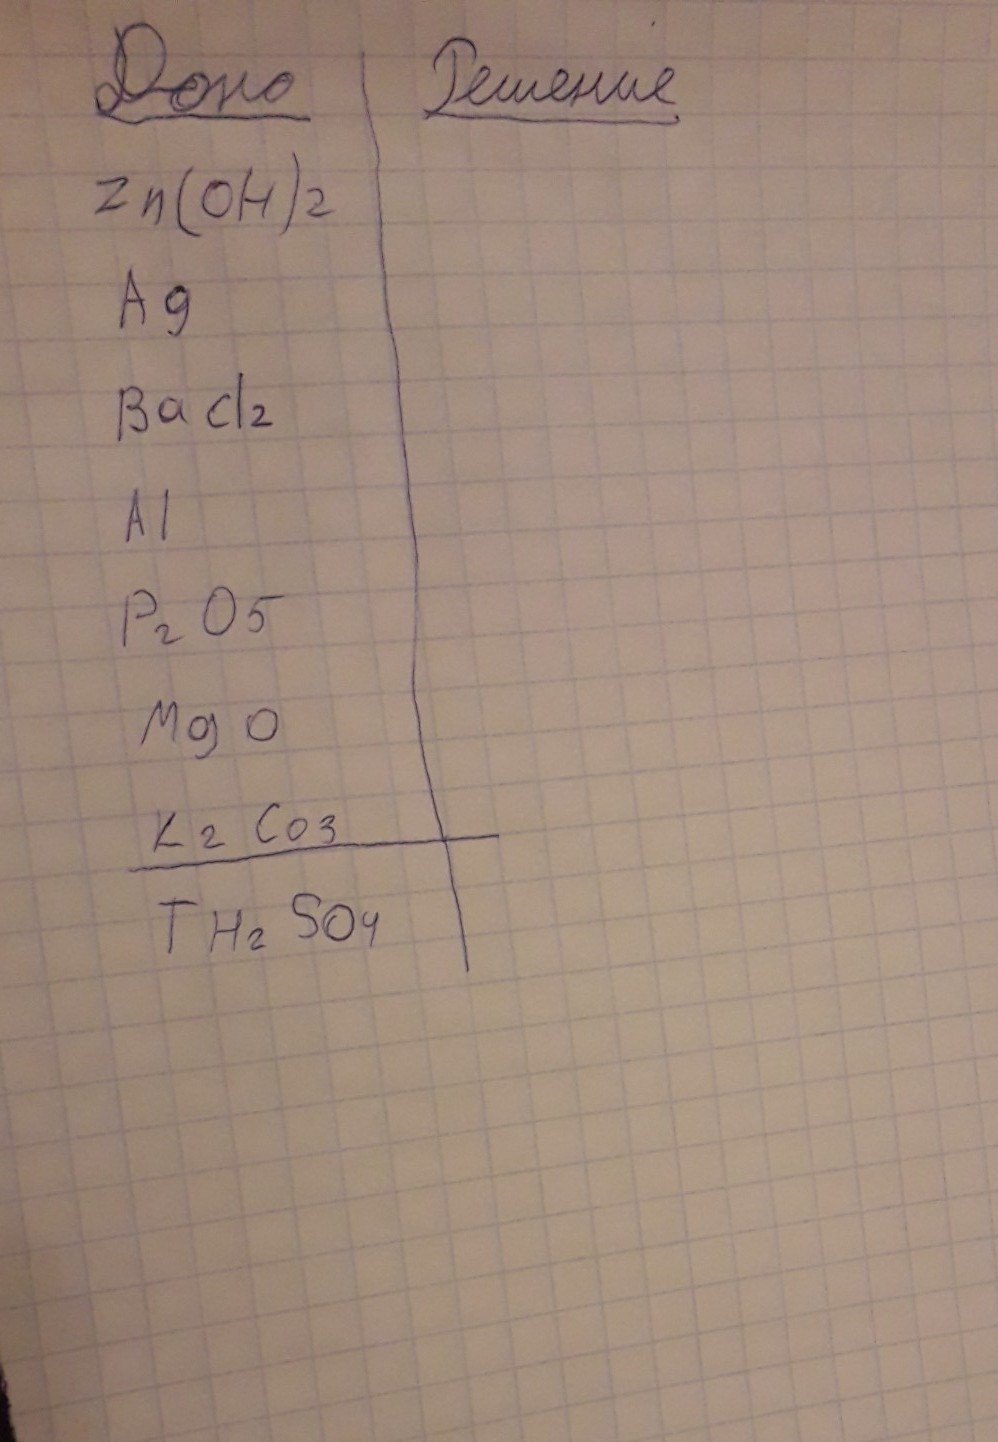 Дано
Решение
Zn(OH)2
Ag
BaCl2
Al
P2O5
MgO
K2CO3
+ H2SO4